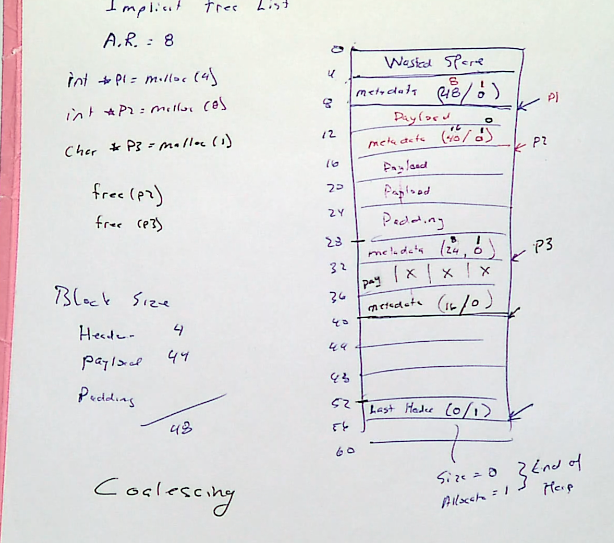 Implicit Free List
A.R. = 8
int *P1 = malloc (4)
int *P2 = malloc (8)
char *P3 = malloc (1)
free (p2)
free (p3)
Block Size
Header 4
Payload 44
Padding
48
Coalescing
0
Wasted Space
4
metadata (48/0) 8 1
8
P1
Payload 0
12
metadata (40/0) 16 1
P2
16
Payload
20
Payload
24
Padding
28
metadata (24, 0) 8 1
P3
32
pay | X | X | X
36
metadata (16/0)
40
44
48
52
Last Header (0/1)
56
60
Size = 0
Allocate = 1
} End of Heap